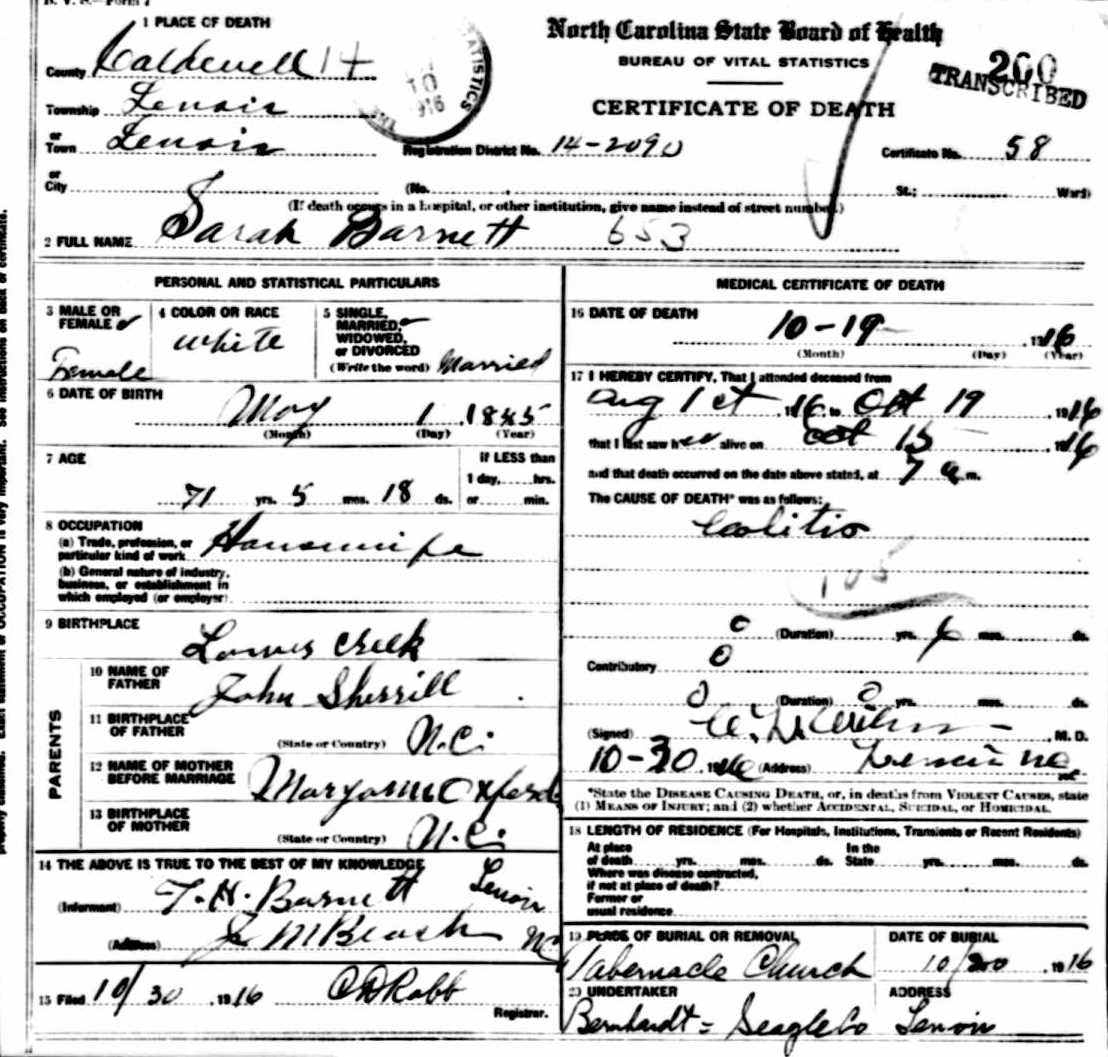 1 PLACE OF DEATH
North Carolina State Board of Health
BUREAU OF VITAL STATISTICS
CERTIFICATE OF DEATH
200
TRANSCRIBED
10
1916
County Caldwell 14
Township Lenoir
or Town Lenoir
Registration District No. 14-2090
Certificate No. 58
or City
(No. St.; Ward)
(If death occurs in a hospital, or other institution, give name instead of street number.)
2 FULL NAME Sarah Barnett 653
PERSONAL AND STATISTICAL PARTICULARS
3 MALE OR FEMALE Female
4 COLOR OR RACE white
5 SINGLE, MARRIED, WIDOWED, or DIVORCED (Write the word) Married
6 DATE OF BIRTH May 1 1845
(Month) (Day) (Year)
7 AGE 71 yrs. 5 mos. 18 ds.
If LESS than 1 day, hrs. or min.
8 OCCUPATION
(a) Trade, profession, or particular kind of work Housewife
(b) General nature of industry, business, or establishment in which employed (or employer)
9 BIRTHPLACE Lowers Creek
PARENTS
10 NAME OF FATHER John Sherrill
11 BIRTHPLACE OF FATHER (State or Country) N.C.
12 NAME OF MOTHER BEFORE MARRIAGE Oxford
13 BIRTHPLACE OF MOTHER (State or Country) N.C.
14 THE ABOVE IS TRUE TO THE BEST OF MY KNOWLEDGE
(Informant) T. H. Barnett Lenoir
(Address) NC
15 Filed 10/30 1916 Registrar.
MEDICAL CERTIFICATE OF DEATH
16 DATE OF DEATH 10-19- 1916
(Month) (Day) (Year)
17 I HEREBY CERTIFY, That I attended deceased from
Aug 1st 1916 to Oct 19 1916
that I last saw her alive on Oct 15 1916
and that death occurred on the date above stated, at 7 a m.
The CAUSE OF DEATH* was as follows:
Colitis
105
0 (Duration) yrs. mos. ds.
Contributory 0
0 (Duration) 0 yrs. mos. ds.
(Signed) M. D.
10-30 1916 (Address) Lenoir NC
*State the DISEASE CAUSING DEATH, or, in deaths from VIOLENT CAUSES, state
(1) MEANS OF INJURY; and (2) whether ACCIDENTAL, SUICIDAL, or HOMICIDAL.
18 LENGTH OF RESIDENCE (For Hospitals, Institutions, Transients or Recent Residents)
At place of death yrs. mos. ds. In the State yrs. mos. ds.
Where was disease contracted, if not at place of death?
Former or usual residence
19 PLACE OF BURIAL OR REMOVAL Tabernacle Church
DATE OF BURIAL 10/20 1916
20 UNDERTAKER Bernhardt = Seagle Co
ADDRESS Lenoir